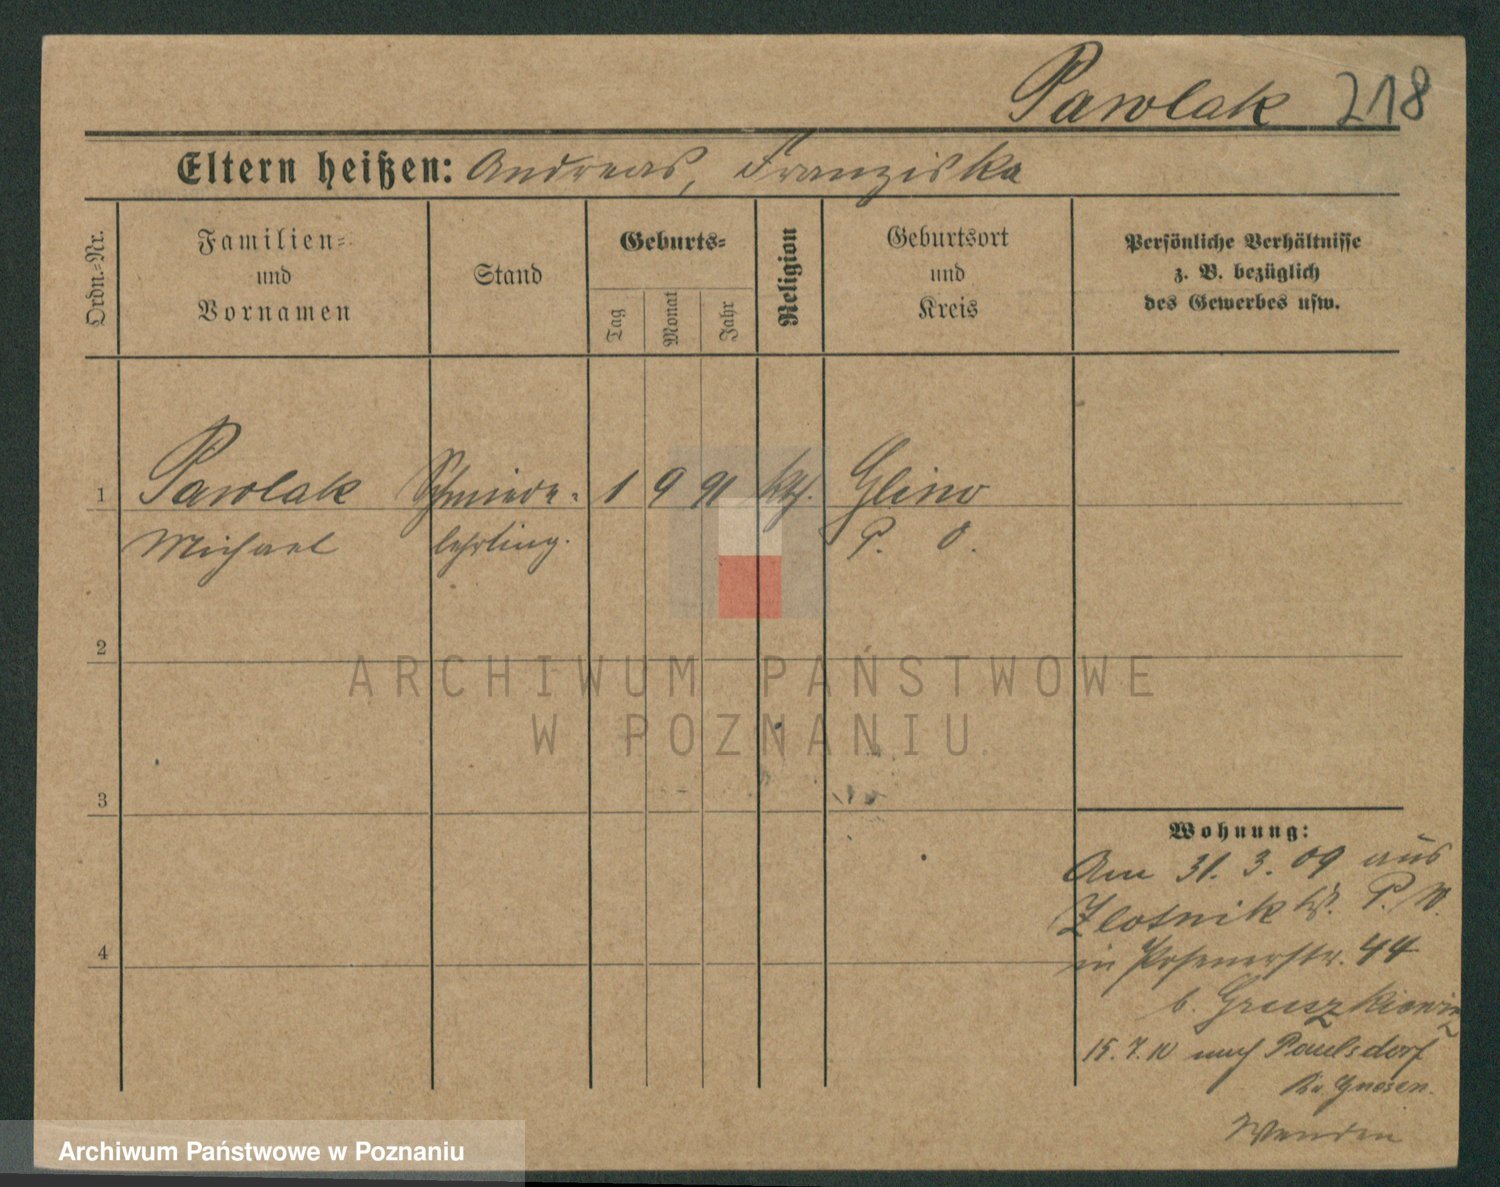 Pawlak 218
Eltern heißen: Andreas, Franziska
Ordn.-Nr.
Familien-
und
Vornamen
Stand
Geburts-
Tag
Monat
Jahr
Religion
Geburtsort
und
Kreis
Persönliche Verhältnisse
z. B. bezüglich
des Gewerbes usw.
1 Pawlak Schmiede- 1 9 91 kth. Glino
Michael lehrling. P. O.
2
3
4
Wohnung:
Am 31. 3. 09 aus
Zlotnik Kr. P. W.
in Posenerstr. 44
b. Gruszkiewicz
15. 7. 10 nach Paulsdorf
Kr. Gnesen.
ARCHIWUM PAŃSTWOWE
W POZNANIU
Archiwum Państwowe w Poznaniu